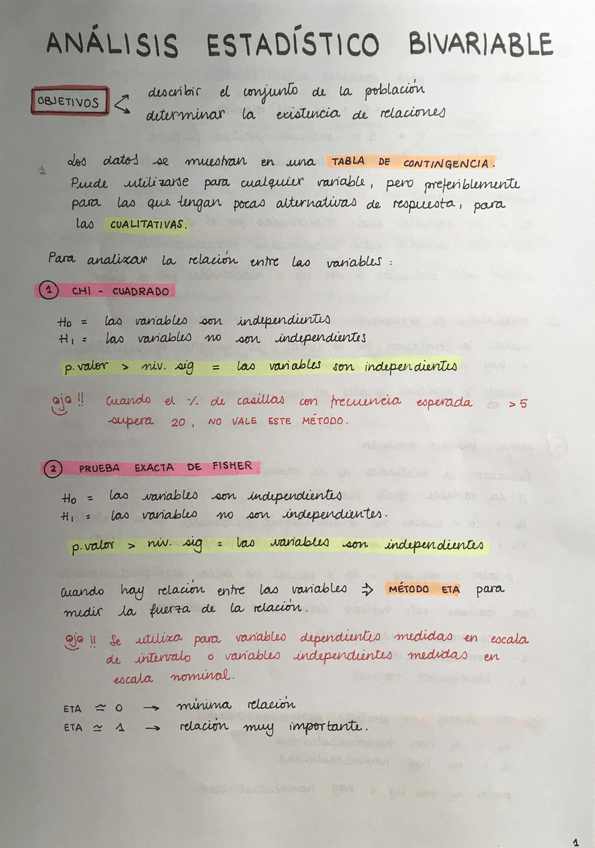 ANÁLISIS ESTADÍSTICO BIVARIABLE
OBJETIVOS
describir el conjunto de la población
determinar la existencia de relaciones
Los datos se muestran en una TABLA DE CONTINGENCIA.
Puede utilizarse para cualquier variable, pero preferiblemente
para las que tengan pocas alternativas de respuesta, para
las CUALITATIVAS.
Para analizar la relación entre las variables:
1 CHI - CUADRADO
H0 = las variables son independientes
H1 = las variables no son independientes
p.valor > niv. sig = las variables son independientes
ojo!! Cuando el % de casillas con frecuencia esperada >5
supera 20, NO VALE ESTE MÉTODO.
2 PRUEBA EXACTA DE FISHER
H0 = las variables son independientes
H1 = las variables no son independientes.
p.valor > niv. sig = las variables son independientes
Cuando hay relación entre las variables => MÉTODO ETA para
medir la fuerza de la relación.
ojo!! Se utiliza para variables dependientes medidas en escala
de intervalo o variables independientes medidas en
escala nominal.
ETA ≃ 0 → mínima relación
ETA ≃ 1 → relación muy importante.
1